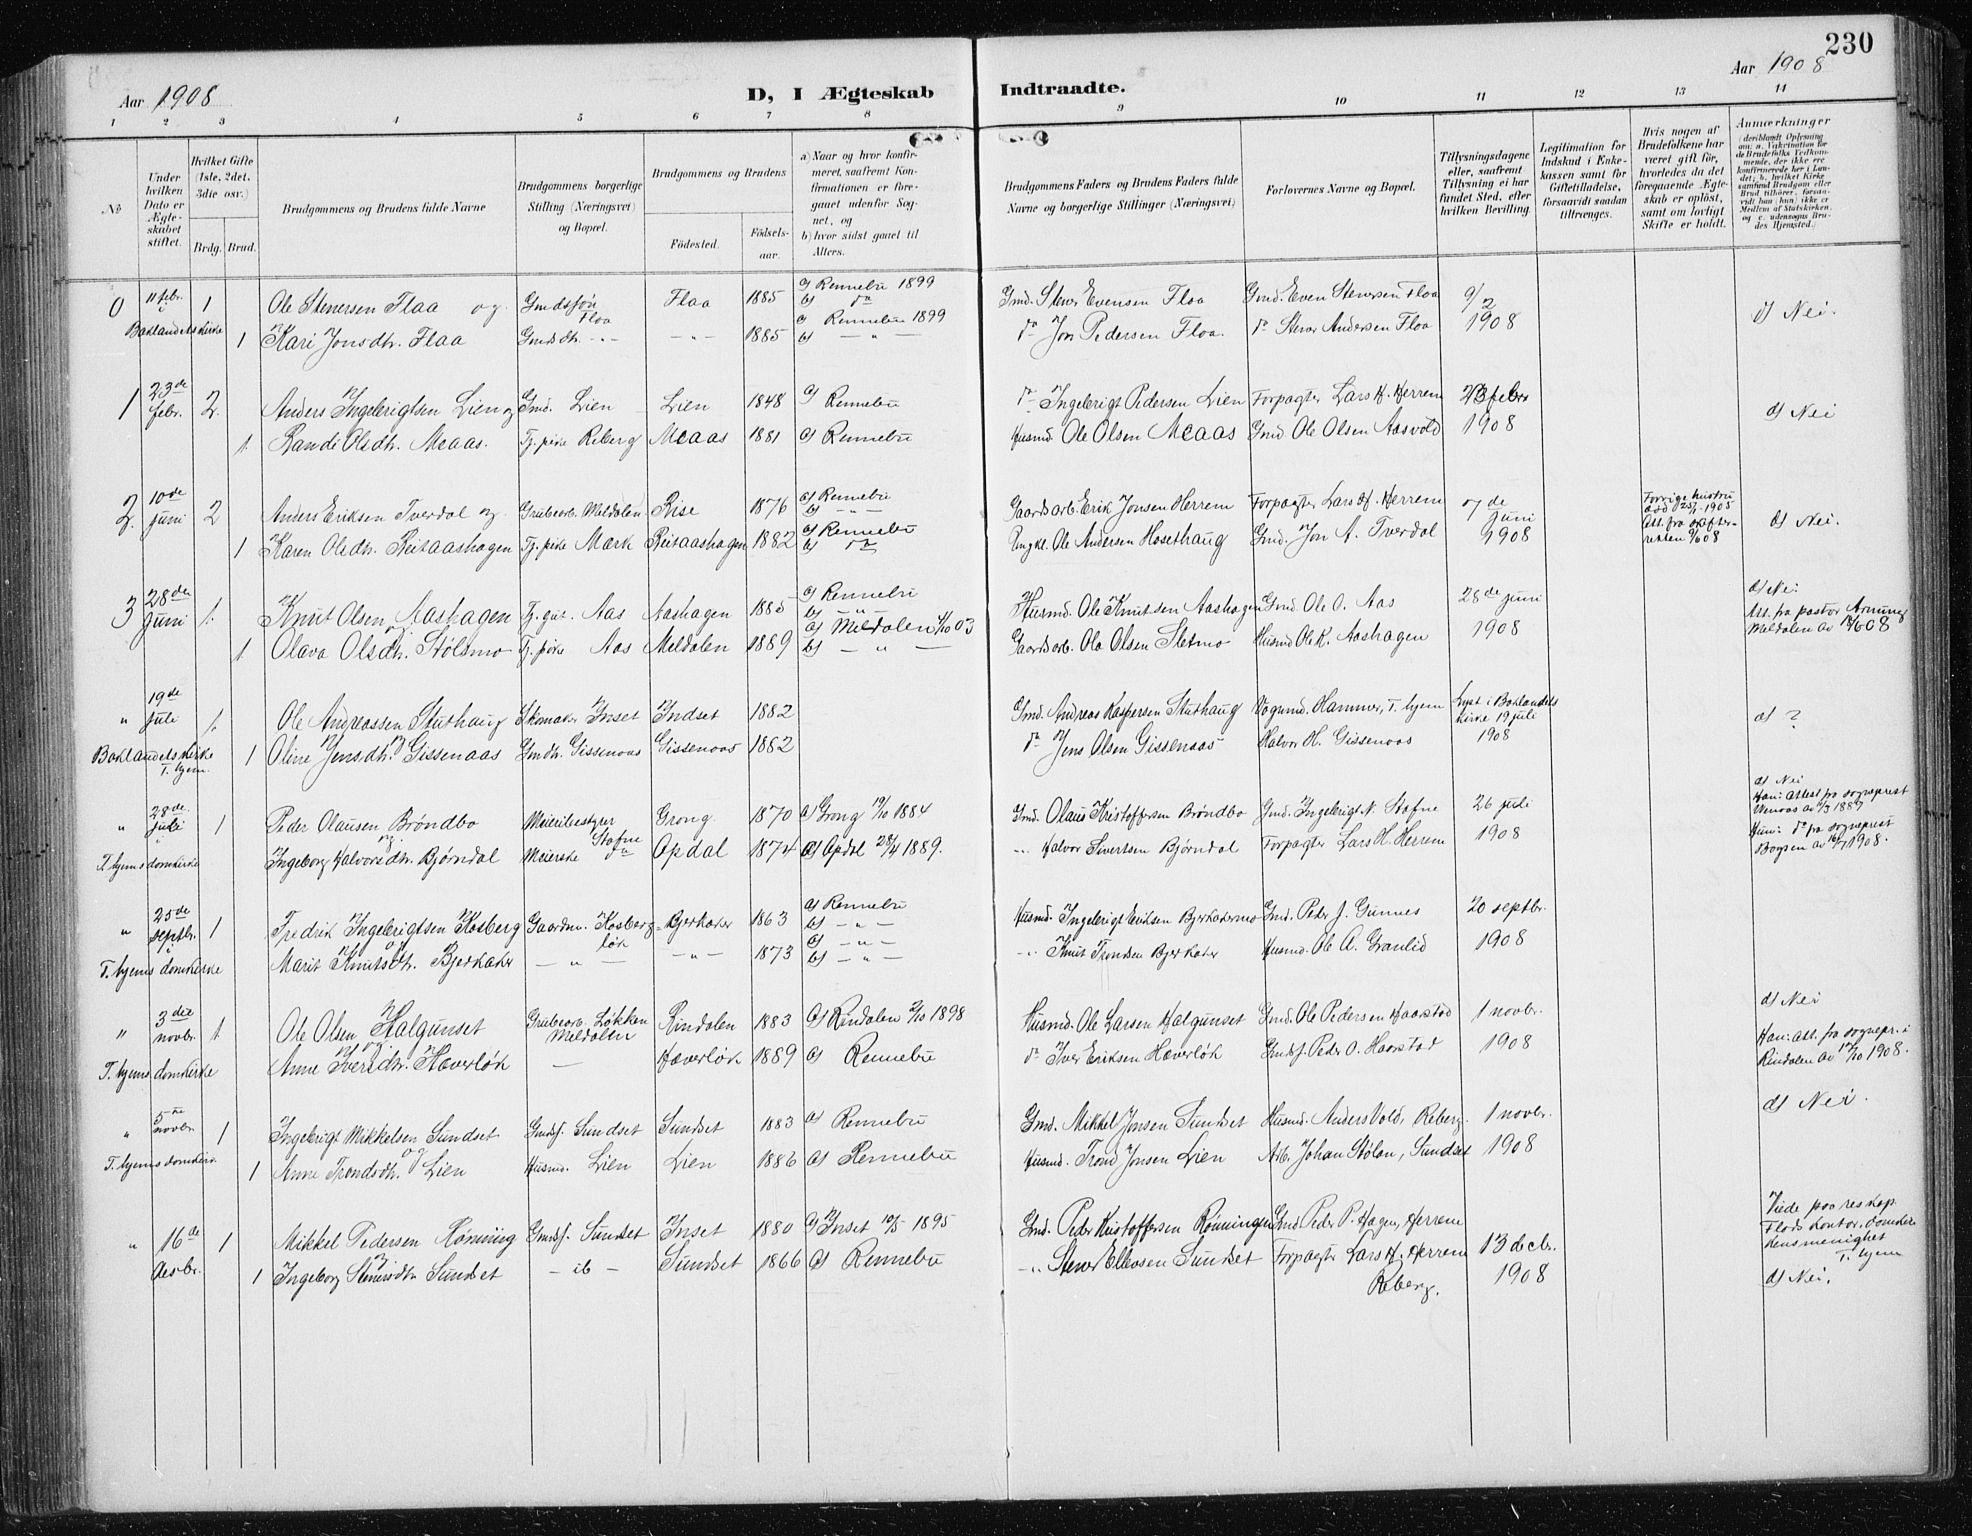 230
Aar 1908
D, I Ægteskab Indtraadte.
Aar 1908
1 2 3 4 5 6 7 8 9 10 11 12 13 14
No
Under hvilken Dato er Ægteskabet stiftet.
Hvilket Gifte (1ste, 2det, 3die osv.)
Brdg. Brud.
Brudgommens og Brudens fulde Navne
Brudgommens borgerlige Stilling (Næringsvei) og Bopæl.
Brudgommens og Brudens
Födested. Födselsaar.
a) Naar og hvor konfirmeret, saafremt Konfirmationen er foregaaet udenfor Sognet, og
b) hvor sidst gaaet til Alters.
Brudgommens Faders og Brudens Faders fulde Navne og borgerlige Stillinger (Næringsvei)
Forlovernes Navne og Bopæl.
Tillysningsdagene eller, saafremt Tillysning ei har fundet Sted, efter hvilken Bevilling.
Legitimation for Indskud i Enkekassen samt for Giftetilladelse, forsaavidt saadan tiltrænges.
Hvis nogen af Brudefolkene har været gift för, hvorledes da det foregaaende Ægteskab er oplöst, samt om lovligt Skifte er holdt.
Anmærkninger
0 11 febr. 1 Ole Stenersen Flaa og Gmdssøn Flaa Flaa 1885 a) Rennebu 1899 b) do Gmd. Stener Evensen Flaa Gmd. Even Stenersen Flaa 9/2 d) Nei.
Baklandets kirke 1 Kari Jonsdtr. Flaa Gmdsdtr. -"- -"- 1885 a) Rennebu 1899 b) -"- do Jon Pedersen Flaa. do Stener Andersen Flaa 1908
1 23de febr. 2. Anders Ingebrigtsen Lien og Gmd. Lien Lien 1848 a) Rennebu do Ingebrigt Pedersen Lien Forpagter Lars H. Herrem 23 febr d) Nei
1. Randi Olsdtr. Meaas. Tj. pike Reberg Meaas 1881 a) Rennebu Husmd. Ole Olsen Meaas Gmd Ole Olsen Aasvold 1908
2. 10de juni 2 Anders Eriksen Tverdal og Grubearb. Meldalen Rise 1876 a) Rennebu b) -"- Gaardsarb. Erik Jonsen Herrem Forpagter Lars H. Herrem 7de juni Forrige hustru død 1905 Att. fra skifteretten d) Nei.
1 Karen Olsdtr. Reitaashagen Tj. pike Mærk Reitaashagen 1882 a) Rennebu b) do Ungkl. Ole Andersen Hosethaug Gmd. Jon A. Tverdal 1908
3 28de juni 1. Knut Olsen Aashagen og Tj. gut. Aas Aashagen 1885 a) Rennebu b) -"- Husmd. Ole Knutsen Aashagen Gmd. Ole O. Aas 28de juni d) Nei
1 Olava Olsdtr. Stølsmo Tj. pike Aas Meldalen 1889 a) Meldalen 4/10 03 b) -"- Gaardsarb. Ole Olsen Sletmo Husmd Ole K. Aashagen 1908 Att. fra pastor Meldalen av
" 19de juli 1. Ole Andreassen Stuthaug Skomaker Inset Indset 1882 Gmd. Andreas Kaspersen Stuthaug Vognmd. Hammer, T. hjem Lyst i Baklandets kirke 19 juli d) ?
Baklandets kirke T. hjem. 1 Oline Jensdtr. Gissenaas Gmdtr. Gissenaas Gissenaas 1882 do Jens Olsen Gissenaas Halvor H. Gissenaas 1908
" 28de juli 1 Peder Olausen Brøndbo og Meieribestyrer Stafne Grong 1870 a) Grong 19/10 1884 Gmd. Olaus Kristoffersen Brøndbo Gmd. Ingebrigt N. Stafne 26 juli d) Nei Han: Attest fra sogneprest
T. hjems domkirke Ingeborg Halvorsdtr. Bjørndal Meierske do Opdal 1874 a) Opdal 28/4 1889. -"- Halvor Sivertsen Bjørndal Forpagter Lars H. Herrem 1908 Hun: do fra sogneprest
" 25de septbr. 1 Fredrik Ingebrigtsen Kosberg og Gaardm. Kosbergløk Bjerkaker 1863 a) Rennebu b) -"- Husmd. Ingebrigt Eriksen Bjerkakermo Gmd. Peder J. Gunnes 20 septbr.
T. hjems domkirke Marit Knutsdtr. Bjerkaker -"- -"- 1873 a) -"- b) -"- -"- Knut Trondsen Bjerkaker Husmd. Ole A. Granlid 1908
" 3die novbr. 1. Ole Olsen Halgunset og Grubearb. Løkken Meldalen Rindalen 1883 a) Rindalen 2/10 1898 Husmd. Ole Larsen Halgunset Gmd. Ole Pedersen Haarstad 1 novbr. d) Nei
T. hjems domkirke Anne Iversdtr. Hæverløk - Hæverløk 1889 a) Rennebu do Iver Eriksen Hæverløk Gmdsf. Peder O. Haarstad 1908 Han: att. fra sognepr. i Rindalen av 1908.
" 5te novbr. 1 Ingebrigt Mikkelsen Sundset og Gmdsf. Sundset Sundset 1883 a) Rennebu Gmd. Mikkel Jonsen Sundset Husmd. Anders Vold, Reberg. 1 novbr. d) Nei.
T. hjems domkirk. 1 Anne Trondsdtr. Lien Husmd. Lien Lien 1886 a) Rennebu Husmd. Trond Jonsen Lien Arb. Johan Stølan, Sundset 1908
" 16de desbr. 1 Mikkel Pedersen Rønning Gmdsf. Sundset Inset 1880 a) Inset 10/5 1895 Gmd. Peder Kristoffersen Rønningen Gmd. Peder P. Hagen, Herrem 13 decbr. Viede paa reskap. Flods kontor, domkirkensmenighet T. hjem
1 Ingeborg Stenersdtr Sundset -ib- Sundset 1866 a) Rennebu -"- Stener Ellevsen Sundset Forpagter Lars H. Herrem Reberg. 1908 d) Nei.